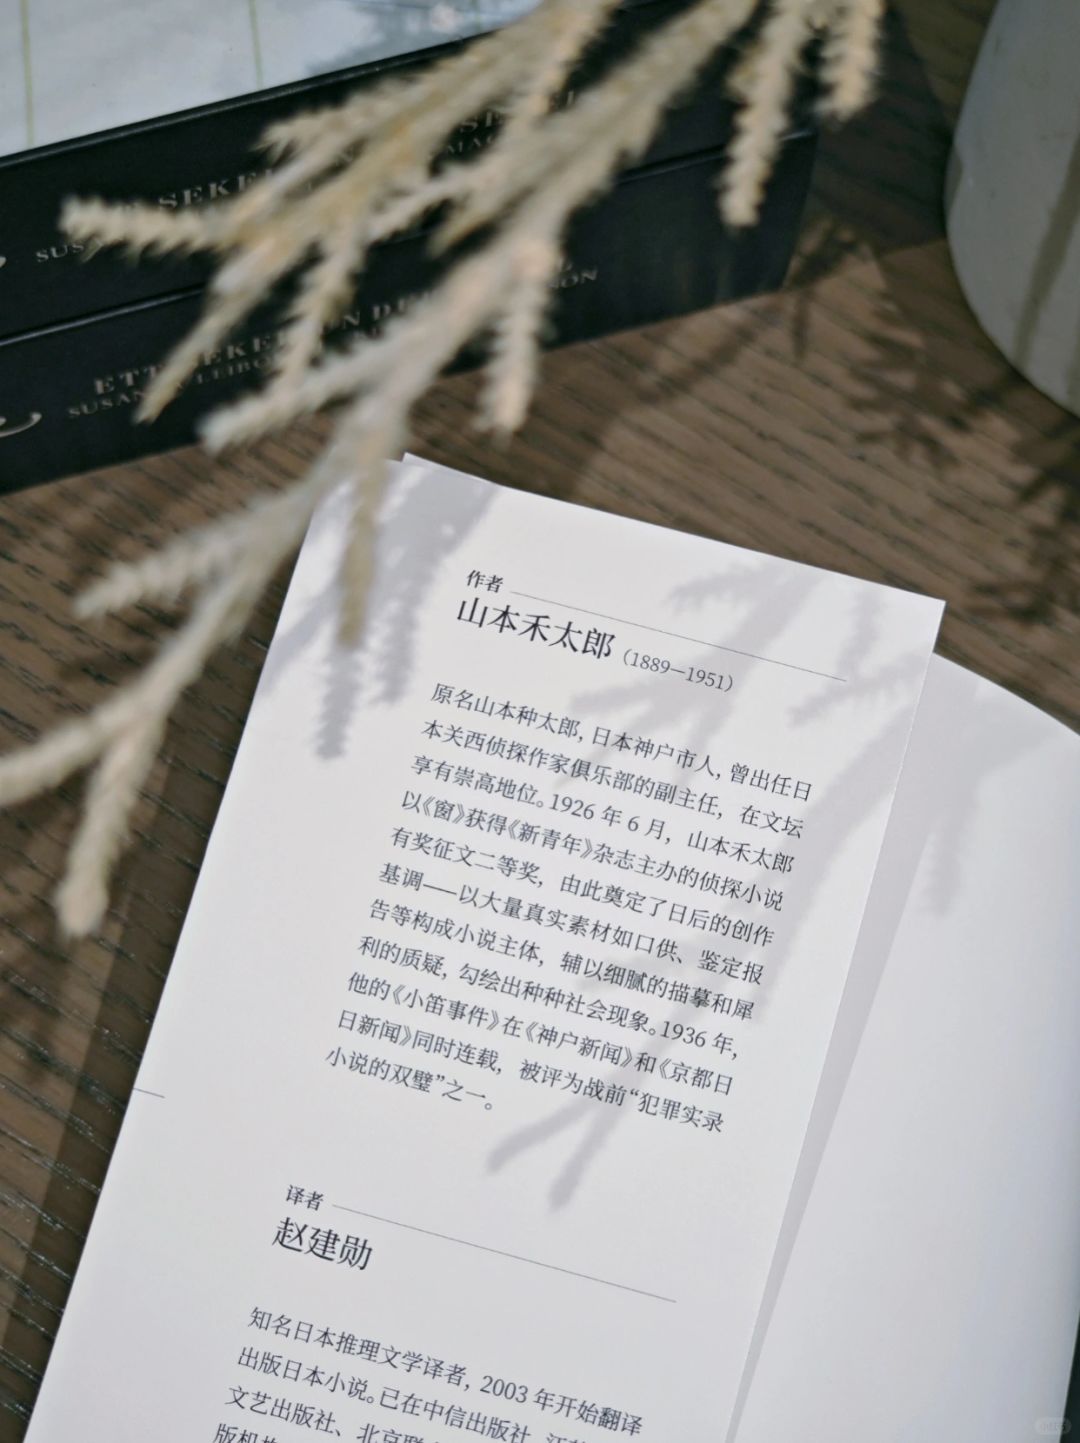 作者
山本禾太郎（1889—1951）
原名山本种太郎，日本神户市人，曾出任日
本关西侦探作家俱乐部的副主任，在文坛
享有崇高地位。1926 年 6 月，山本禾太郎
以《窗》获得《新青年》杂志主办的侦探小说
有奖征文二等奖，由此奠定了日后的创作
基调——以大量真实素材如口供、鉴定报
告等构成小说主体，辅以细腻的描摹和犀
利的质疑，勾绘出种种社会现象。1936 年，
他的《小笛事件》在《神户新闻》和《京都日
日新闻》同时连载，被评为战前“犯罪实录
小说的双璧”之一。
译者
赵建勋
知名日本推理文学译者，2003 年开始翻译
出版日本小说。已在中信出版社、
文艺出版社、北京